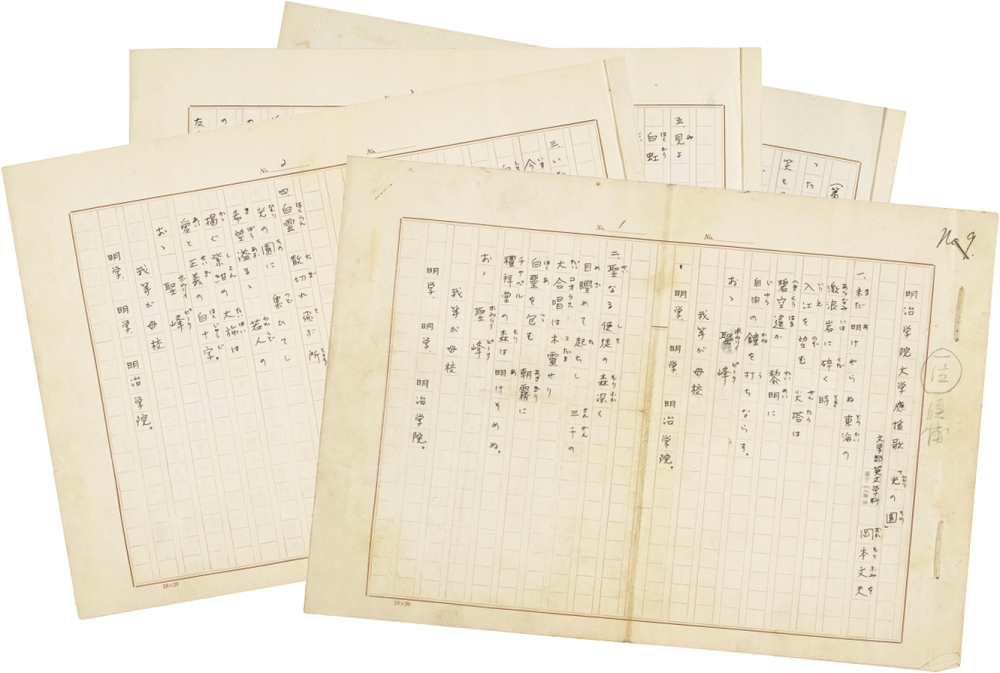 No.9.
1
明治学院大学應援歌「光の園」
一位候補
文学部英文学科 岡本文史
一、未だ明けやらぬ東海の
激浪岩に砕く時
入江を望む 尖塔は
碧空遥か 黎明に
自由の鐘を打ちならす。
おゝ 聖峰
我等が母校
明学 明学 明治学院。
二、聖なる使徒の森深く
目瞠めて起ちし 三千の
大合唱は木霊せり
白堊を包む 朝霧に
禮拝堂の森は明けそめぬ。
おゝ 聖峰
我等が母校
明学 明学 明治学院。
20×20
No. 2
三、い
今
四、白雲 散切れ飛ぶ所
光の園に 集ひてし
希望溢るゝ 若人の
掲ぐ紫紺の大旗は
愛と正義の白十字。
おゝ 聖峰
我等が母校
明学 明学 明治学院。
20×20
五、見よ
白虹
友